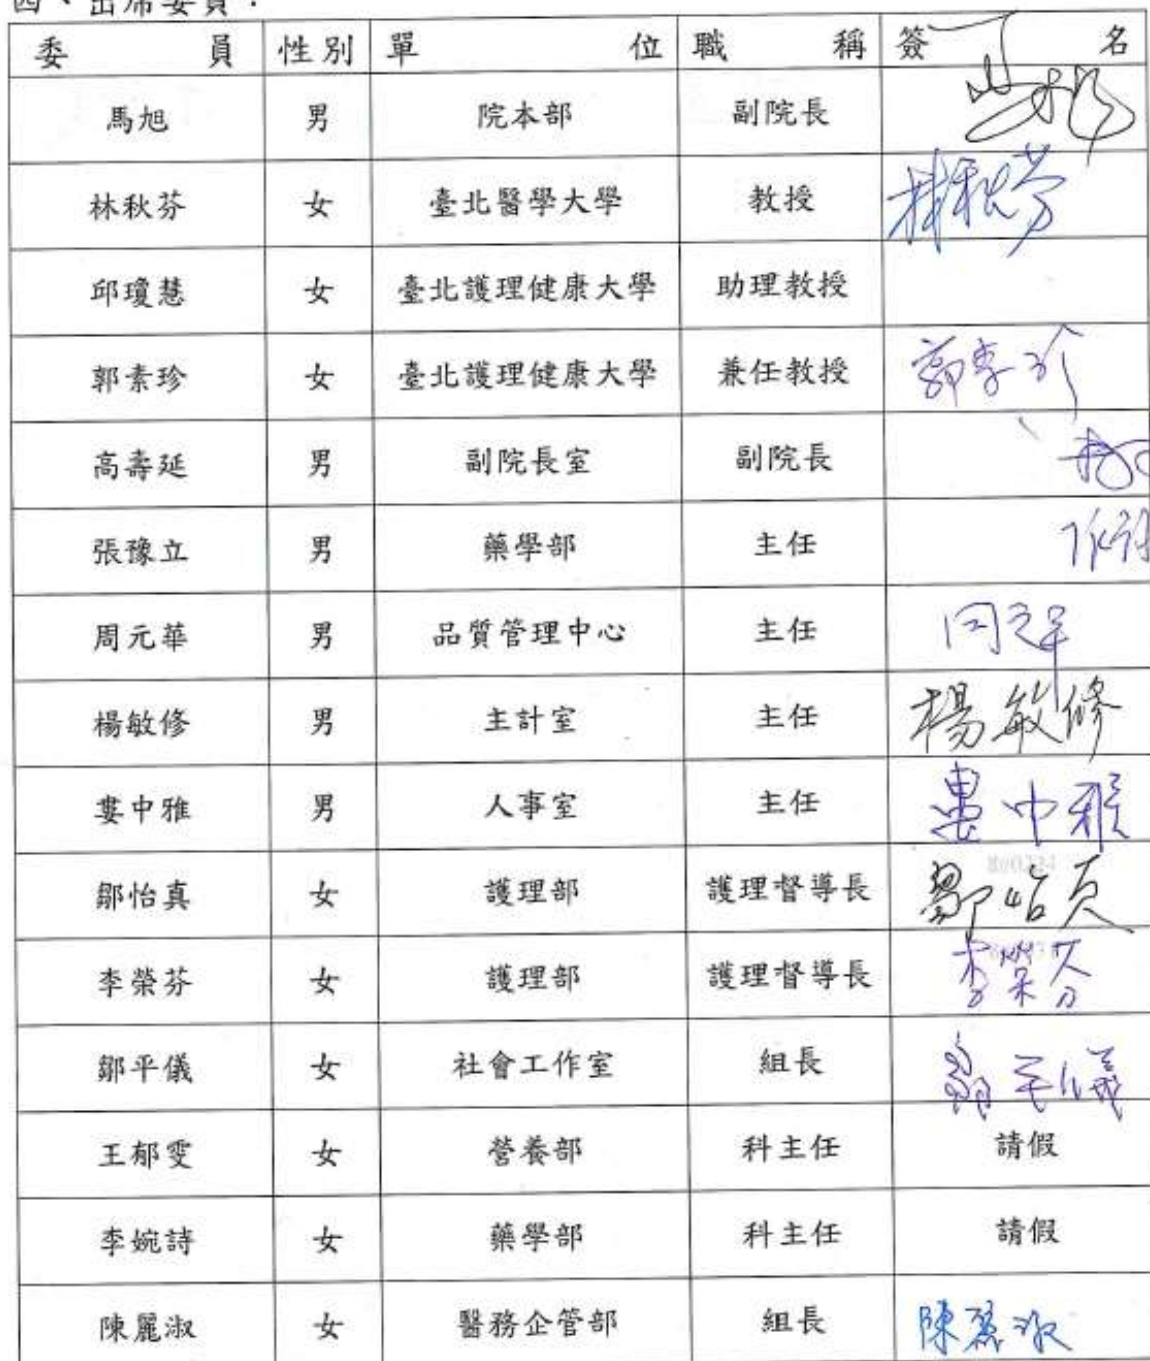 四、出席委員：
委員 性別 單位 職稱 簽名
馬旭 男 院本部 副院長
林秋芬 女 臺北醫學大學 教授 林秋芬
邱瓊慧 女 臺北護理健康大學 助理教授
郭素珍 女 臺北護理健康大學 兼任教授 郭素珍
高壽延 男 副院長室 副院長
張豫立 男 藥學部 主任
周元華 男 品質管理中心 主任 周元華
楊敏修 男 主計室 主任 楊敏修
婁中雅 男 人事室 主任 婁中雅
鄒怡真 女 護理部 護理督導長 鄒怡真
李榮芬 女 護理部 護理督導長 李榮芬
鄒平儀 女 社會工作室 組長 鄒平儀
王郁雯 女 營養部 科主任 請假
李婉詩 女 藥學部 科主任 請假
陳麗淑 女 醫務企管部 組長 陳麗淑